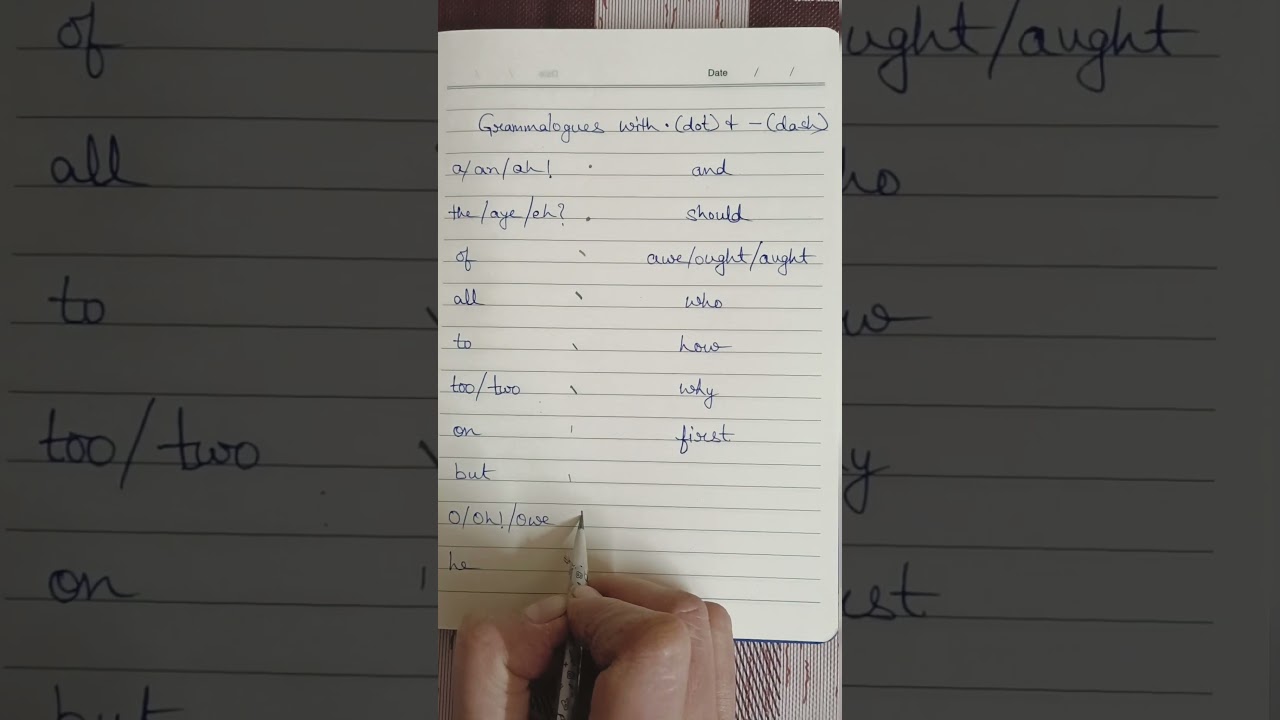 Date / /
Grammalogues with · (dot) & – (dash)
a/an/ah! · and
the/aye/eh? · should
of \ awe/ought/aught
all \ who
to \ how
too/two \ why
on | first
but |
O/Oh!/Owe |
he